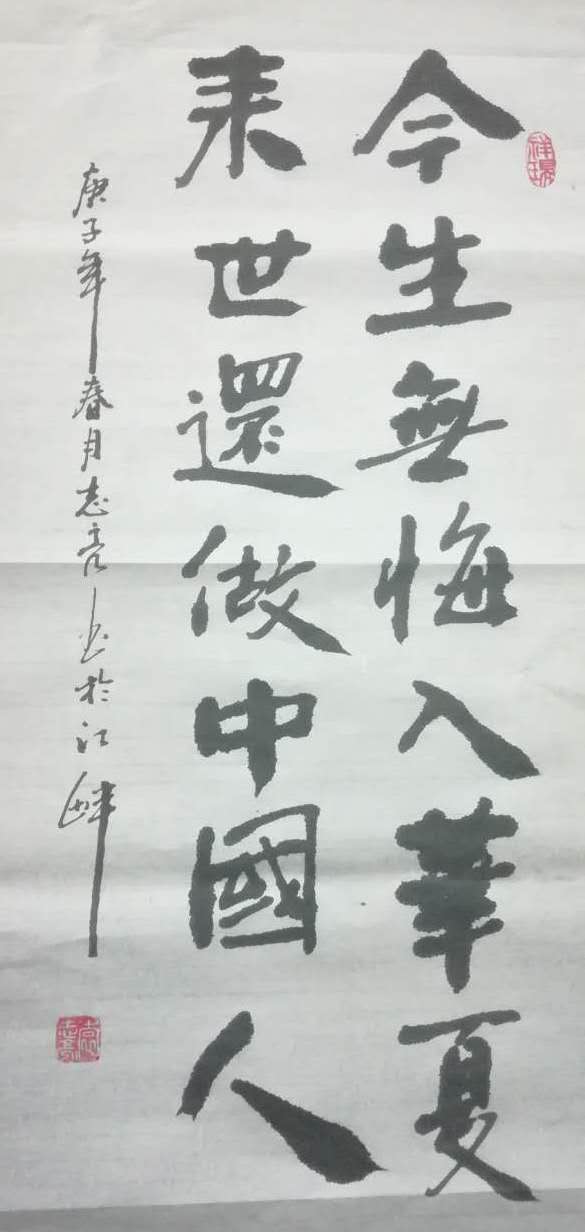 今生無悔入華夏
来世還做中國人
庚子年春月志亮书於江畔